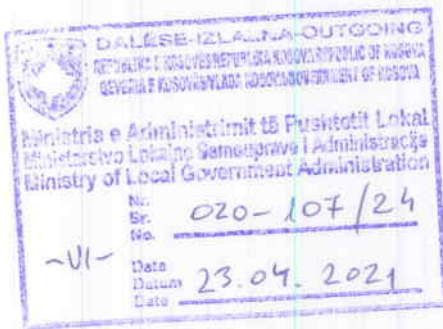 DALËSE-IZLAZNA-OUTGOING
REPUBLIKA E KOSOVËS/REPUBLIKA KOSOVA/REPUBLIC OF KOSOVA
QEVERIA E KOSOVËS/VLADA KOSOVA/GOVERNMENT OF KOSOVA
Ministria e Administrimit të Pushtetit Lokal
Ministarstvo Lokalne Samouprave i Administracije
Ministry of Local Government Administration
Nr.
Br. 020-107/24
No.
-VI-
Data
Datum 23.04.2021
Date